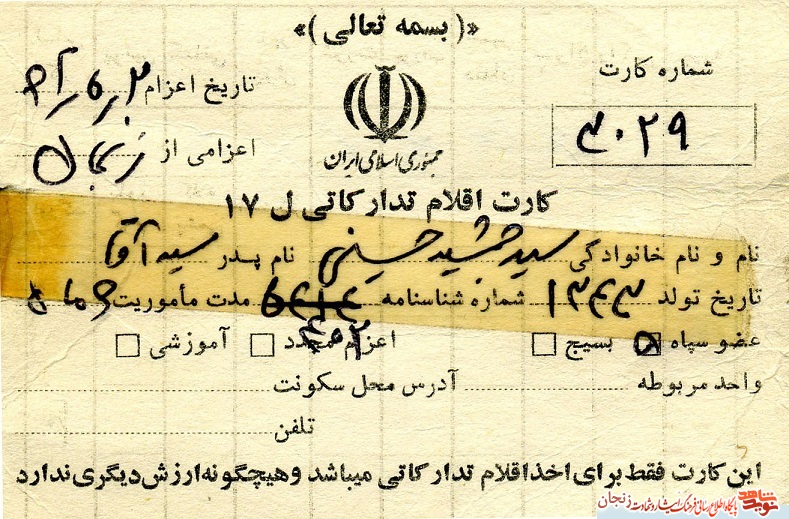 «(بسمه تعالی)»
شماره کارت
۳۰۲۹
تاریخ اعزام
جمهوری اسلامی ایران
اعزامی از زنجان
کارت اقلام تدارکاتی ل ۱۷
نام و نام خانوادگی سید جمشید حسینی نام پدر سید آقا
تاریخ تولد ۱۳۴۳ شماره شناسنامه مدت مأموریت ۶ ماه
عضو سپاه بسیج اعزام مجدد آموزشی
۴۰۲
واحد مربوطه آدرس محل سکونت
تلفن
این کارت فقط برای اخذ اقلام تدارکاتی میباشد و هیچگونه ارزش دیگری ندارد
نوید شاهد
پایگاه اطلاع رسانی فرهنگ ایثار و شهادت زنجان